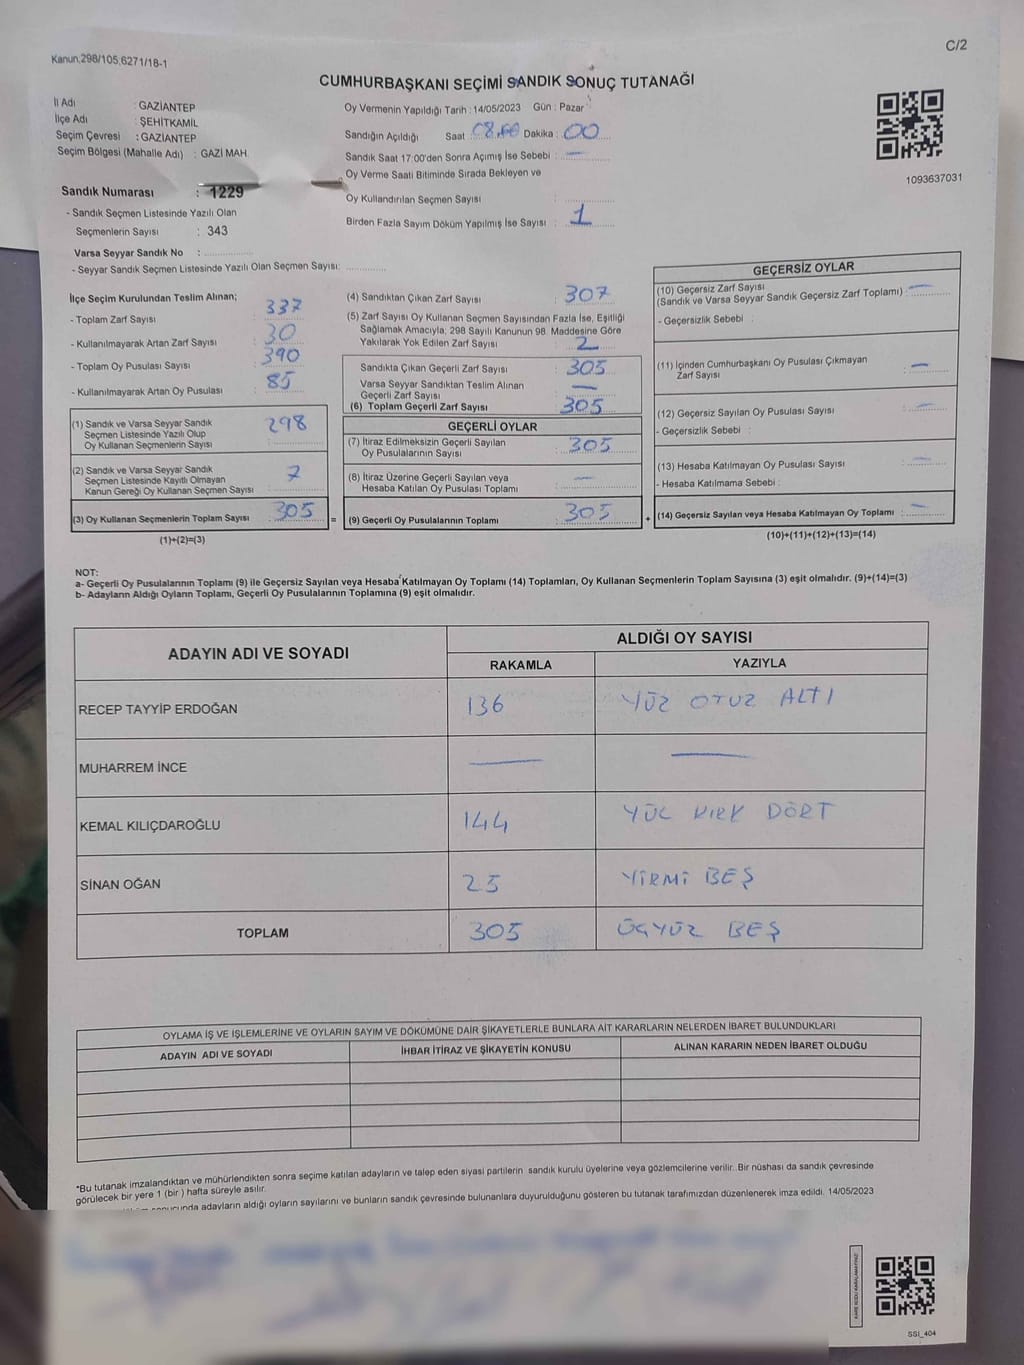 Kanun.298/105,6271/18-1
C/2
CUMHURBAŞKANI SEÇİMİ SANDIK SONUÇ TUTANAĞI
İl Adı : GAZİANTEP
İlçe Adı : ŞEHİTKAMİL
Seçim Çevresi : GAZİANTEP
Seçim Bölgesi (Mahalle Adı) : GAZİ MAH.
Sandık Numarası : 1229
- Sandık Seçmen Listesinde Yazılı Olan
Seçmenlerin Sayısı : 343
Varsa Seyyar Sandık No :
- Seyyar Sandık Seçmen Listesinde Yazılı Olan Seçmen Sayısı:
Oy Vermenin Yapıldığı Tarih : 14/05/2023 Gün : Pazar
Sandığın Açıldığı Saat : 08.00 Dakika : 00
Sandık Saat 17:00'den Sonra Açımış İse Sebebi : —
Oy Verme Saati Bitiminde Sırada Bekleyen ve
Oy Kullandırılan Seçmen Sayısı :
Birden Fazla Sayım Döküm Yapılmış İse Sayısı : 1
1093637031
İlçe Seçim Kurulundan Teslim Alınan;
- Toplam Zarf Sayısı : 337
- Kullanılmayarak Artan Zarf Sayısı : 30
- Toplam Oy Pusulası Sayısı : 390
- Kullanılmayarak Artan Oy Pusulası : 85
(1) Sandık ve Varsa Seyyar Sandık
Seçmen Listesinde Yazılı Olup
Oy Kullanan Seçmenlerin Sayısı : 298
(2) Sandık ve Varsa Seyyar Sandık
Seçmen Listesinde Kayıtlı Olmayan
Kanun Gereği Oy Kullanan Seçmen Sayısı : 7
(3) Oy Kullanan Seçmenlerin Toplam Sayısı : 305
(1)+(2)=(3)
=
(4) Sandıktan Çıkan Zarf Sayısı : 307
(5) Zarf Sayısı Oy Kullanan Seçmen Sayısından Fazla İse, Eşitliği
Sağlamak Amacıyla; 298 Sayılı Kanunun 98. Maddesine Göre
Yakılarak Yok Edilen Zarf Sayısı : 2
Sandıkta Çıkan Geçerli Zarf Sayısı : 305
Varsa Seyyar Sandıktan Teslim Alınan
Geçerli Zarf Sayısı : —
(6) Toplam Geçerli Zarf Sayısı : 305
GEÇERLİ OYLAR
(7) İtiraz Edilmeksizin Geçerli Sayılan
Oy Pusulalarının Sayısı : 305
(8) İtiraz Üzerine Geçerli Sayılan veya
Hesaba Katılan Oy Pusulası Toplamı : —
(9) Geçerli Oy Pusulalarının Toplamı : 305
+
GEÇERSİZ OYLAR
(10) Geçersiz Zarf Sayısı
(Sandık ve Varsa Seyyar Sandık Geçersiz Zarf Toplamı) : —
- Geçersizlik Sebebi :
(11) İçinden Cumhurbaşkanı Oy Pusulası Çıkmayan
Zarf Sayısı : —
(12) Geçersiz Sayılan Oy Pusulası Sayısı : —
- Geçersizlik Sebebi :
(13) Hesaba Katılmayan Oy Pusulası Sayısı : —
- Hesaba Katılmama Sebebi :
(14) Geçersiz Sayılan veya Hesaba Katılmayan Oy Toplamı : —
(10)+(11)+(12)+(13)=(14)
NOT:
a- Geçerli Oy Pusulalarının Toplamı (9) ile Geçersiz Sayılan veya Hesaba Katılmayan Oy Toplamı (14) Toplamları, Oy Kullanan Seçmenlerin Toplam Sayısına (3) eşit olmalıdır. (9)+(14)=(3)
b- Adayların Aldığı Oyların Toplamı, Geçerli Oy Pusulalarının Toplamına (9) eşit olmalıdır.
ADAYIN ADI VE SOYADI
ALDIĞI OY SAYISI
RAKAMLA YAZIYLA
RECEP TAYYİP ERDOĞAN 136 YÜZ OTUZ ALTI
MUHARREM İNCE — —
KEMAL KILIÇDAROĞLU 144 YÜZ KIRK DÖRT
SİNAN OĞAN 25 YİRMİ BEŞ
TOPLAM 305 ÜÇYÜZ BEŞ
OYLAMA İŞ VE İŞLEMLERİNE VE OYLARIN SAYIM VE DÖKÜMÜNE DAİR ŞİKAYETLERLE BUNLARA AİT KARARLARIN NELERDEN İBARET BULUNDUKLARI
ADAYIN ADI VE SOYADI İHBAR İTİRAZ VE ŞİKAYETİN KONUSU ALINAN KARARIN NEDEN İBARET OLDUĞU
*Bu tutanak imzalandıktan ve mühürlendikten sonra seçime katılan adayların ve talep eden siyasi partilerin sandık kurulu üyelerine veya gözlemcilerine verilir. Bir nüshası da sandık çevresinde
görülecek bir yere 1 (bir) hafta süreyle asılır.
adayların aldığı oyların sayılarını ve bunların sandık çevresinde bulunanlara duyurulduğunu gösteren bu tutanak tarafımızdan düzenlenerek imza edildi. 14/05/2023
KARE KODU KARALAMAYINIZ!
SSI_404